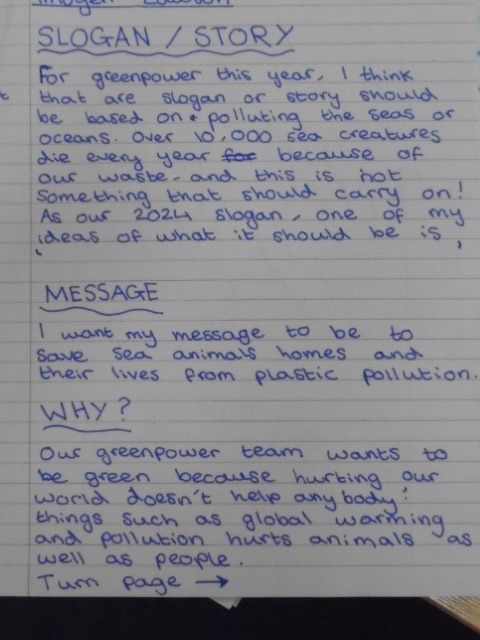 SLOGAN / STORY
For greenpower this year, I think
that are slogan or story should
be based on polluting the seas or
oceans. Over 10,000 sea creatures
die every year for because of
our waste, and this is not
something that should carry on!
As our 2024 slogan, one of my
ideas of what it should be is
' '
MESSAGE
I want my message to be to
save sea animals homes and
their lives from plastic pollution.
WHY?
Our greenpower team wants to
be green because hurting our
world doesn't help anybody!
things such as global warming
and pollution hurts animals as
well as people.
Turn page →